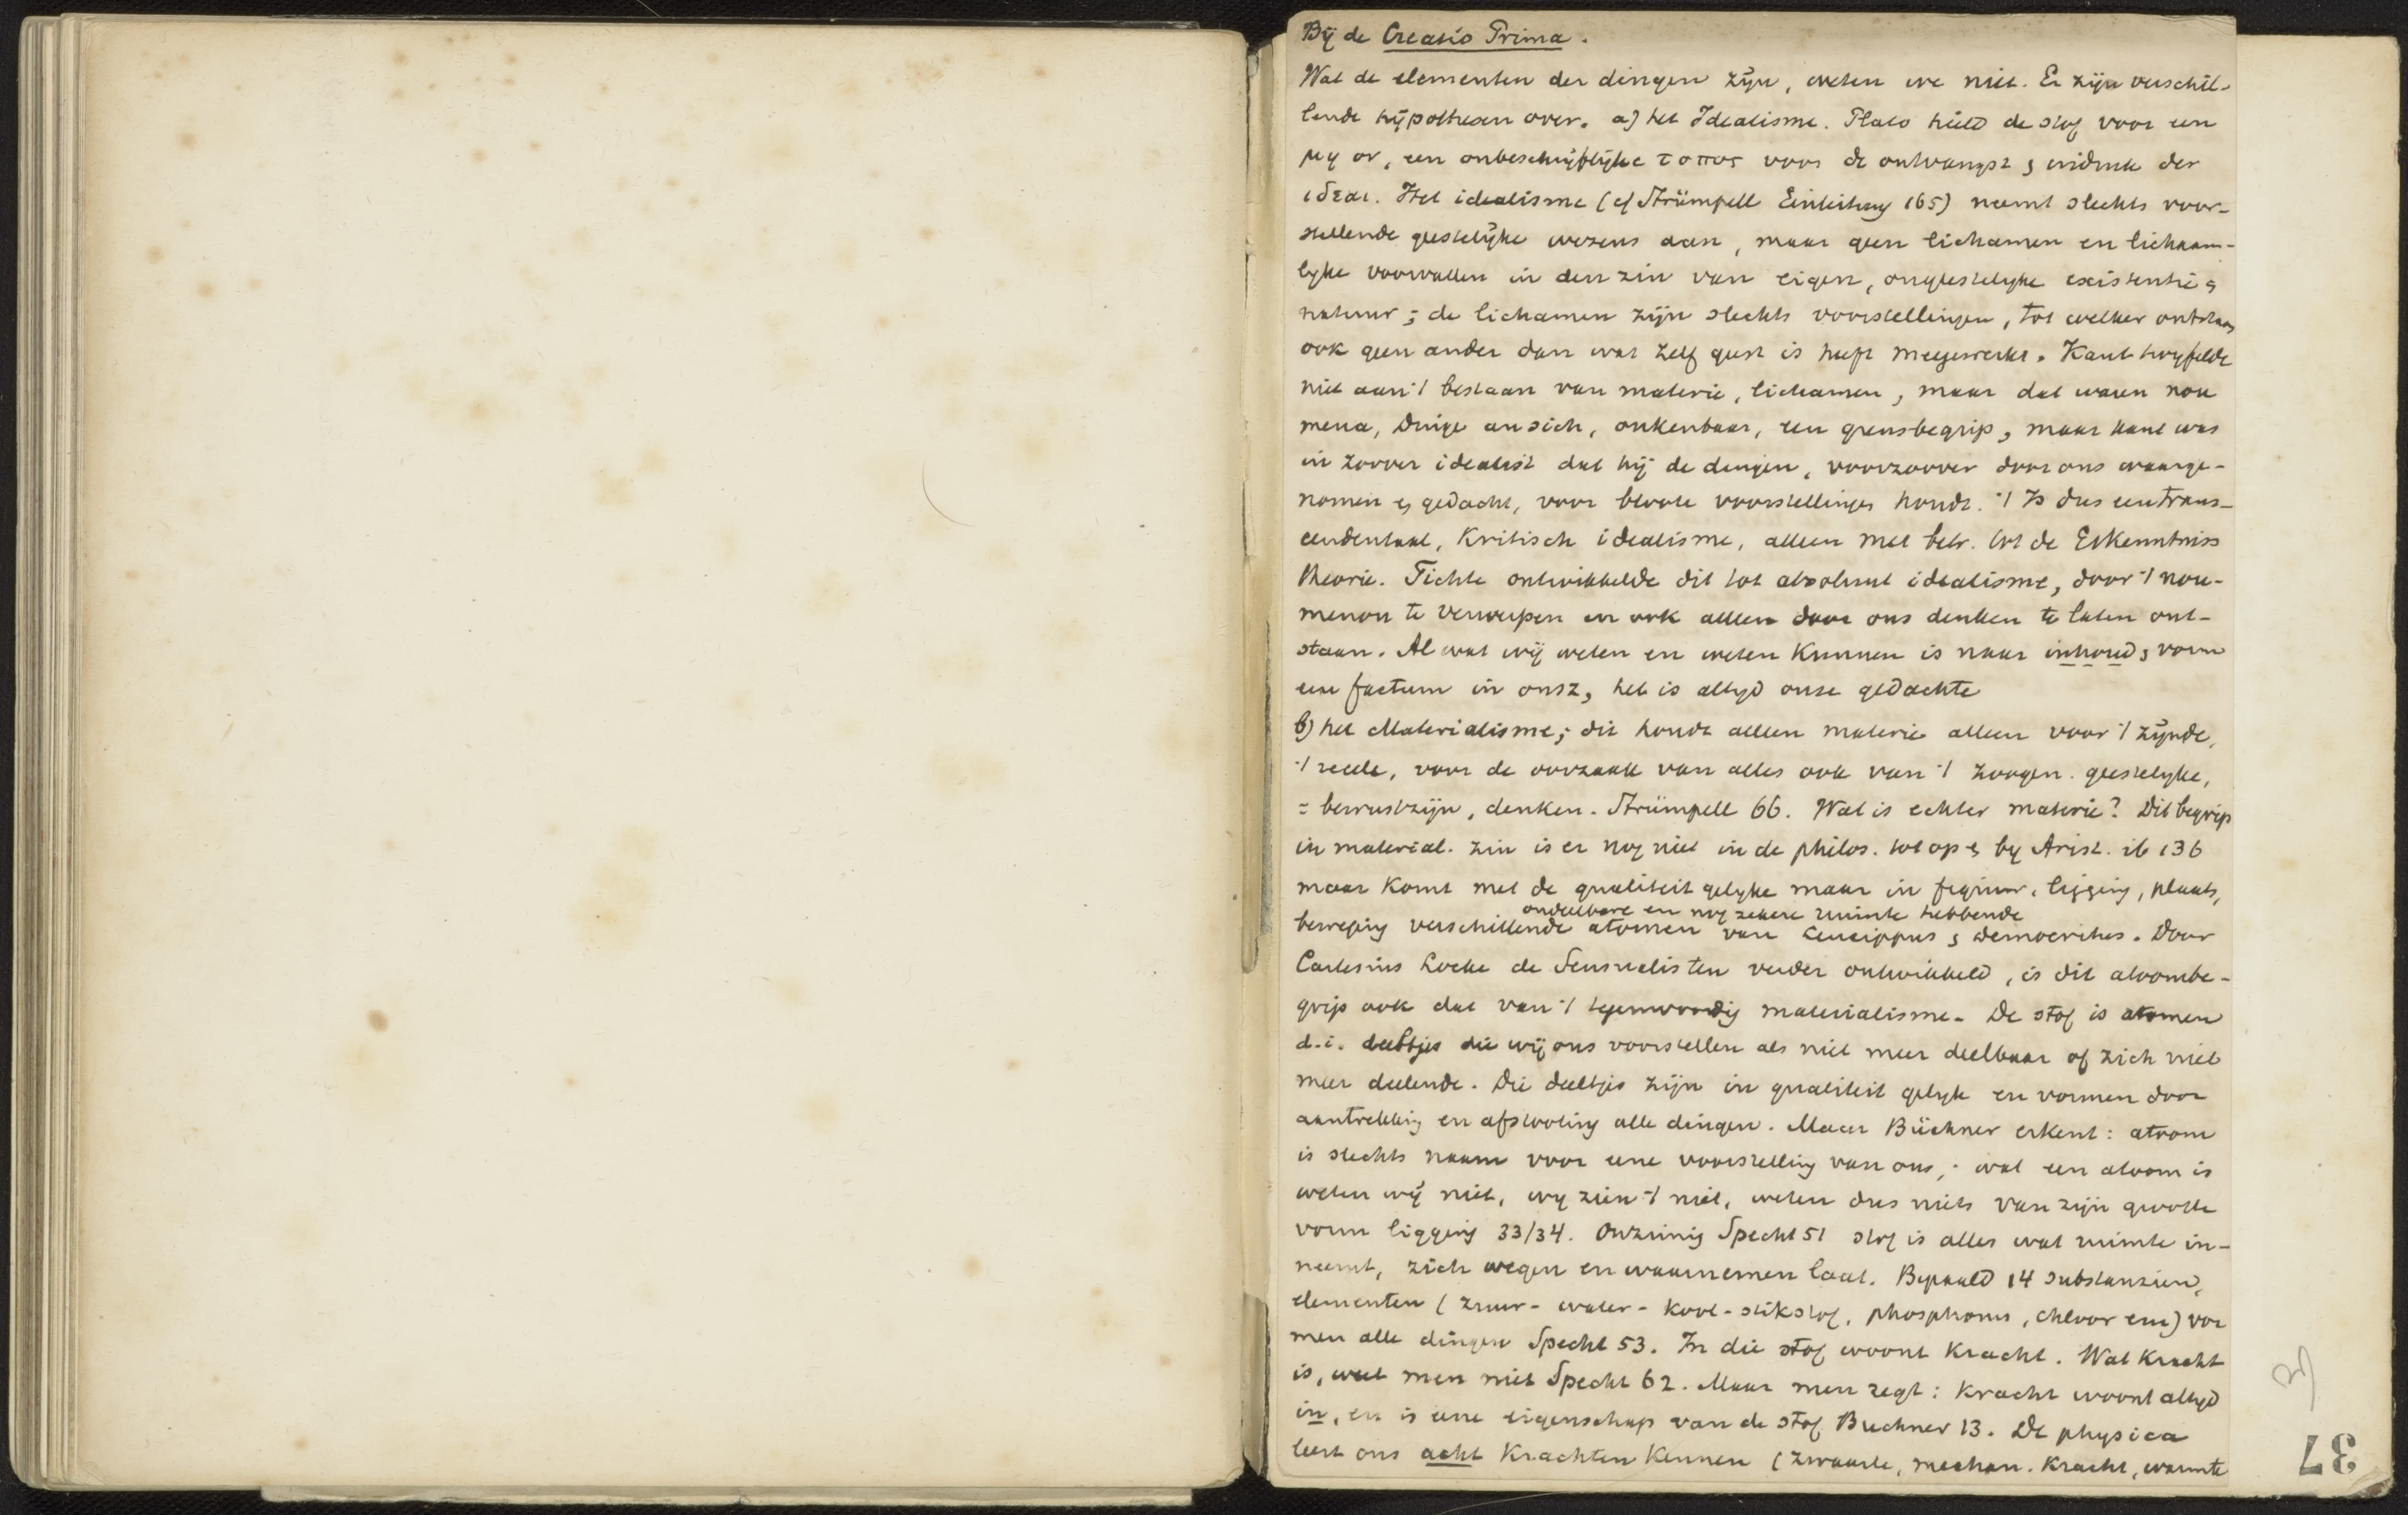 Bij de Creatio Prima.
Wat de elementen der dingen zijn, weten we niet. Er zijn verschil-
lende hijpothesen over. a) het Idealisme. Plato hield de stof voor een
μη ον, een onbeschrijflijke τοπος voor de ontvangst & indruk der
ιδεαι. Het idealisme (cf Strümpell Einleitung 165) neemt slechts voor-
stellende geestelijke wezens aan, maar geen lichamen en lichaam-
lyke voorvallen in den zin van eigen, ongeestelyke existentie &
natuur; de lichamen zijn slechts voorstellingen, tot welker ontstaan
ook geen ander dan wat zelf geest is heeft meegewerkt. Kant twyfelde
niet aan 't bestaan van materie, lichamen, maar dat waren nou
mena, Dinge an sich, onkenbaar, een grensbegrip, maar Kant was
in zoover idealist dat hij de dingen, voorzoover door ons waarge-
nomen & gedacht, voor bloote voorstellingen houdt. 't Is dus een trans-
cendentaal, Kritisch idealisme, alleen met betr. tot de Erkenntniss
theorie. Fichte ontwikkelde dit tot absoluut idealisme, door 't nou-
menon te verwerpen en ook alleen door ons denken te laten ont-
staan. Al wat wij weten en weten Kunnen is naar inhoud & vorm
een factum in onsz, het is altyd onze gedachte
b) het Materialisme; dit houdt alleen materie alleen voor 't zijnde,
't reeele, voor de oorzaak van alles ook van 't zoogen. geestelyke,
= bewustzijn, denken. Strümpell 66. Wat is echter materie? Dit begrip
in material. zin is er nog niet in de philos. tot op & by Arist. ib 136
maar Komt met de qualiteit gelyke maar in figuur, ligging, plaats,
ondeelbare en nog zekere ruimte hebbende
beweging verschillende atomen van Leucippus & Democritus. Door
Cartesius Locke de Sensualisten verder ontwikkeld, is dit atoombe-
grip ook dat van 't tegenwoordig materialisme. De stof is atomen
d.i. deeltjes die wij ons voorstellen als niet meer deelbaar of zich niet
meer deelende. Die deeltjes zijn in qualiteit gelyk en vormen door
aantrekking en afstooting alle dingen. Maar Büchner erkent: atoom
is slechts naam voor eene voorstelling van ons; wat een atoom is
weten wij niet, wy zien 't niet, weten dus niets van zijn grootte
vorm ligging 33/34. Onzinnig Specht 51 stof is alles wat ruimte in-
neemt, zich wegen en waarnemen laat. Bepaald 14 substanzien,
elementen (zuur- water- Kool- stikstof, phosphorus, chloor enz) vor
men alle dingen Specht 53. In die stof woont Kracht. Wat Kracht
is, weet men niet Specht 62. Maar men zegt: Kracht woont altyd
in, en is eene eigenschap van de stof Buchner 13. De physica
leert ons acht Krachten Kennen (zwaarte, mechan. Kracht, warmte
37